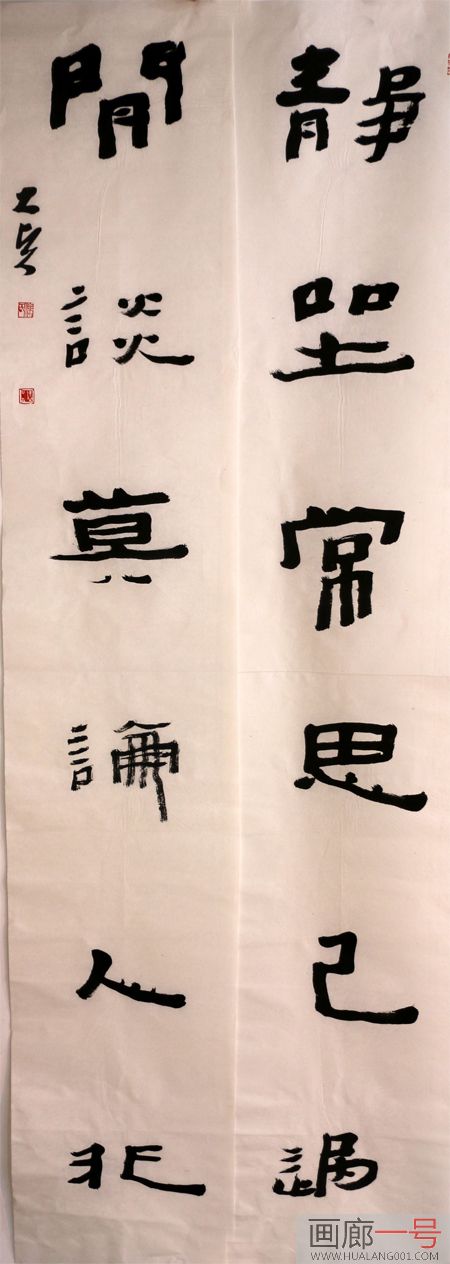 靜坐常思己過
閒談莫論人非
画廊一号
WWW.HUALANG001.COM